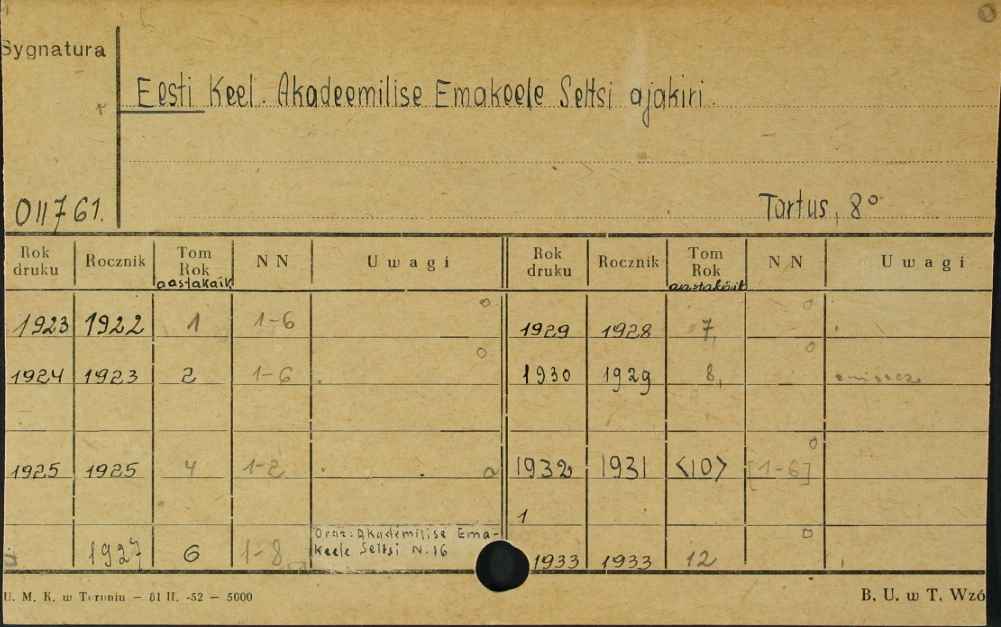 Sygnatura
Eesti Keel. Akadeemilise Emakeele Seltsi ajakiri.
011761.
Tartus, 8°
Rok druku Rocznik Tom Rok aastakäik NN Uwagi Rok druku Rocznik Tom Rok aastakäik NN Uwagi
1923 1922 1 1-6 1929 1928 7,
1924 1923 2 1-6 1930 1929 8,
1925 1925 4 1-2 1932 1931 <10> [1-6]
1
1927 6 1-8 Oraz: Akademilise Ema-
keele Seltsi N. 16 1933 1933 12
U. M. K. w Toruniu — 81 II. -52 — 5000 B. U. w T. Wzó